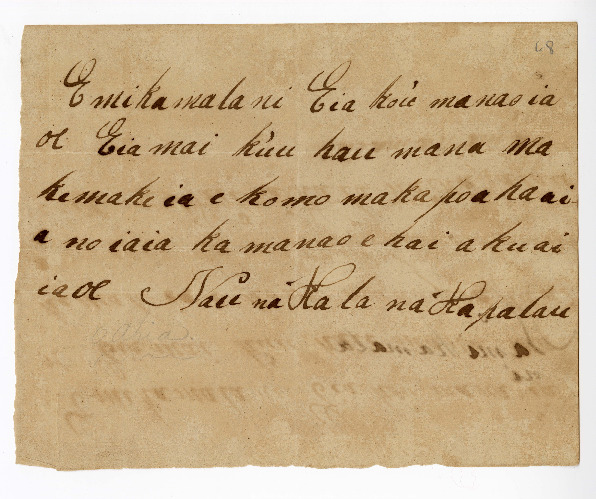 68
E mikamalani Eia ko'u manao ia
oe Eia mai ku'u hau mana ma
kemake ia e komo maka poahaai
a no iaia ka manao e hai aku ai
ia oe Na'u na Hala na Hapalau